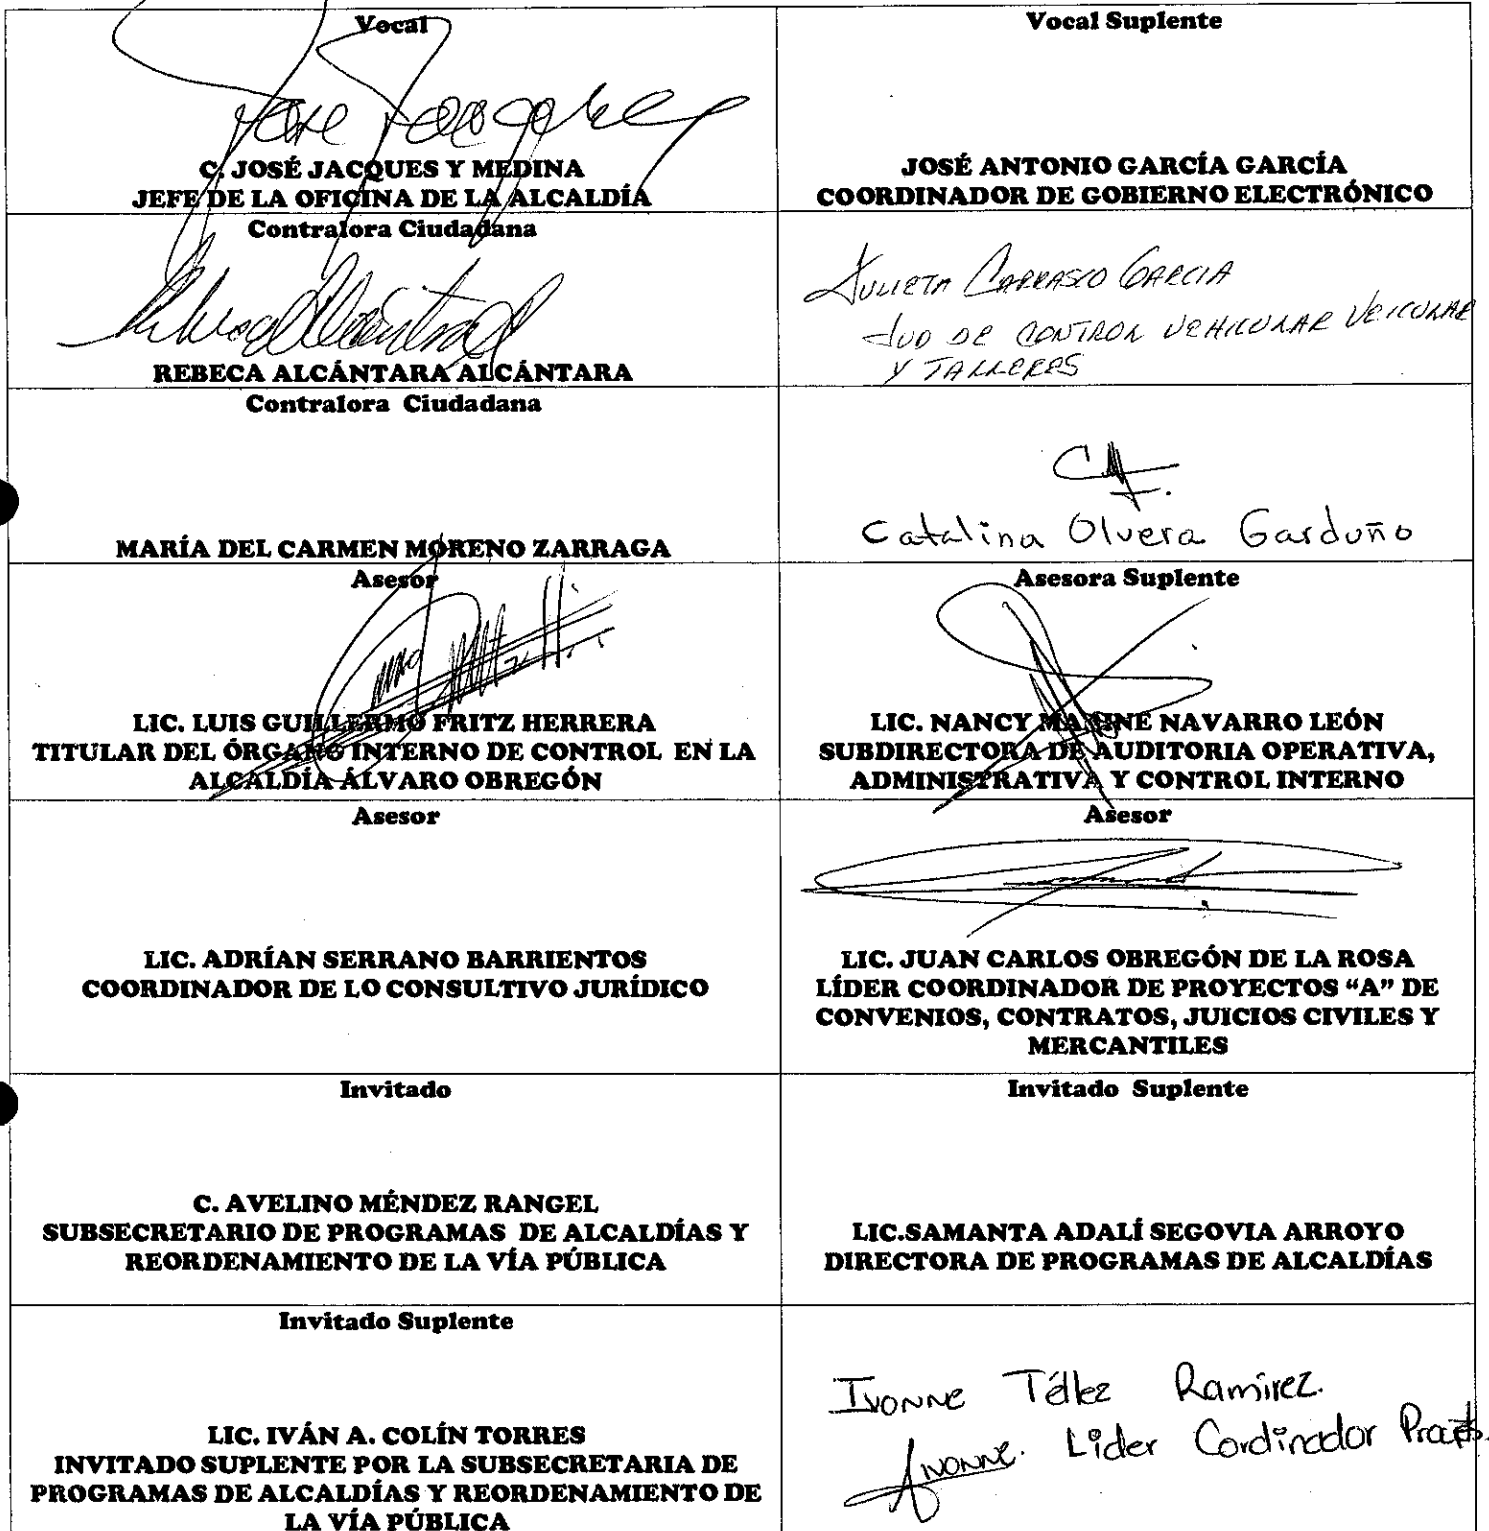 Vocal
Jose Jacques
C. JOSÉ JACQUES Y MEDINA
JEFE DE LA OFICINA DE LA ALCALDÍA
Vocal Suplente
JOSÉ ANTONIO GARCÍA GARCÍA
COORDINADOR DE GOBIERNO ELECTRÓNICO
Contralora Ciudadana
REBECA ALCÁNTARA ALCÁNTARA
JULIETA CARRASCO GARCIA
JUD DE CONTROL VEHICULAR VEICULAR
Y TALLERES
Contralora Ciudadana
MARÍA DEL CARMEN MORENO ZARRAGA
Catalina Olvera Garduño
Asesor
LIC. LUIS GUILLERMO FRITZ HERRERA
TITULAR DEL ÓRGANO INTERNO DE CONTROL EN LA
ALCALDÍA ÁLVARO OBREGÓN
Asesora Suplente
LIC. NANCY MAXINE NAVARRO LEÓN
SUBDIRECTORA DE AUDITORIA OPERATIVA,
ADMINISTRATIVA Y CONTROL INTERNO
Asesor
LIC. ADRÍAN SERRANO BARRIENTOS
COORDINADOR DE LO CONSULTIVO JURÍDICO
Asesor
LIC. JUAN CARLOS OBREGÓN DE LA ROSA
LÍDER COORDINADOR DE PROYECTOS “A” DE
CONVENIOS, CONTRATOS, JUICIOS CIVILES Y
MERCANTILES
Invitado
C. AVELINO MÉNDEZ RANGEL
SUBSECRETARIO DE PROGRAMAS DE ALCALDÍAS Y
REORDENAMIENTO DE LA VÍA PÚBLICA
Invitado Suplente
LIC.SAMANTA ADALÍ SEGOVIA ARROYO
DIRECTORA DE PROGRAMAS DE ALCALDÍAS
Invitado Suplente
LIC. IVÁN A. COLÍN TORRES
INVITADO SUPLENTE POR LA SUBSECRETARIA DE
PROGRAMAS DE ALCALDÍAS Y REORDENAMIENTO DE
LA VÍA PÚBLICA
Ivonne Téllez Ramirez.
Ivonne. Lider Cordinador